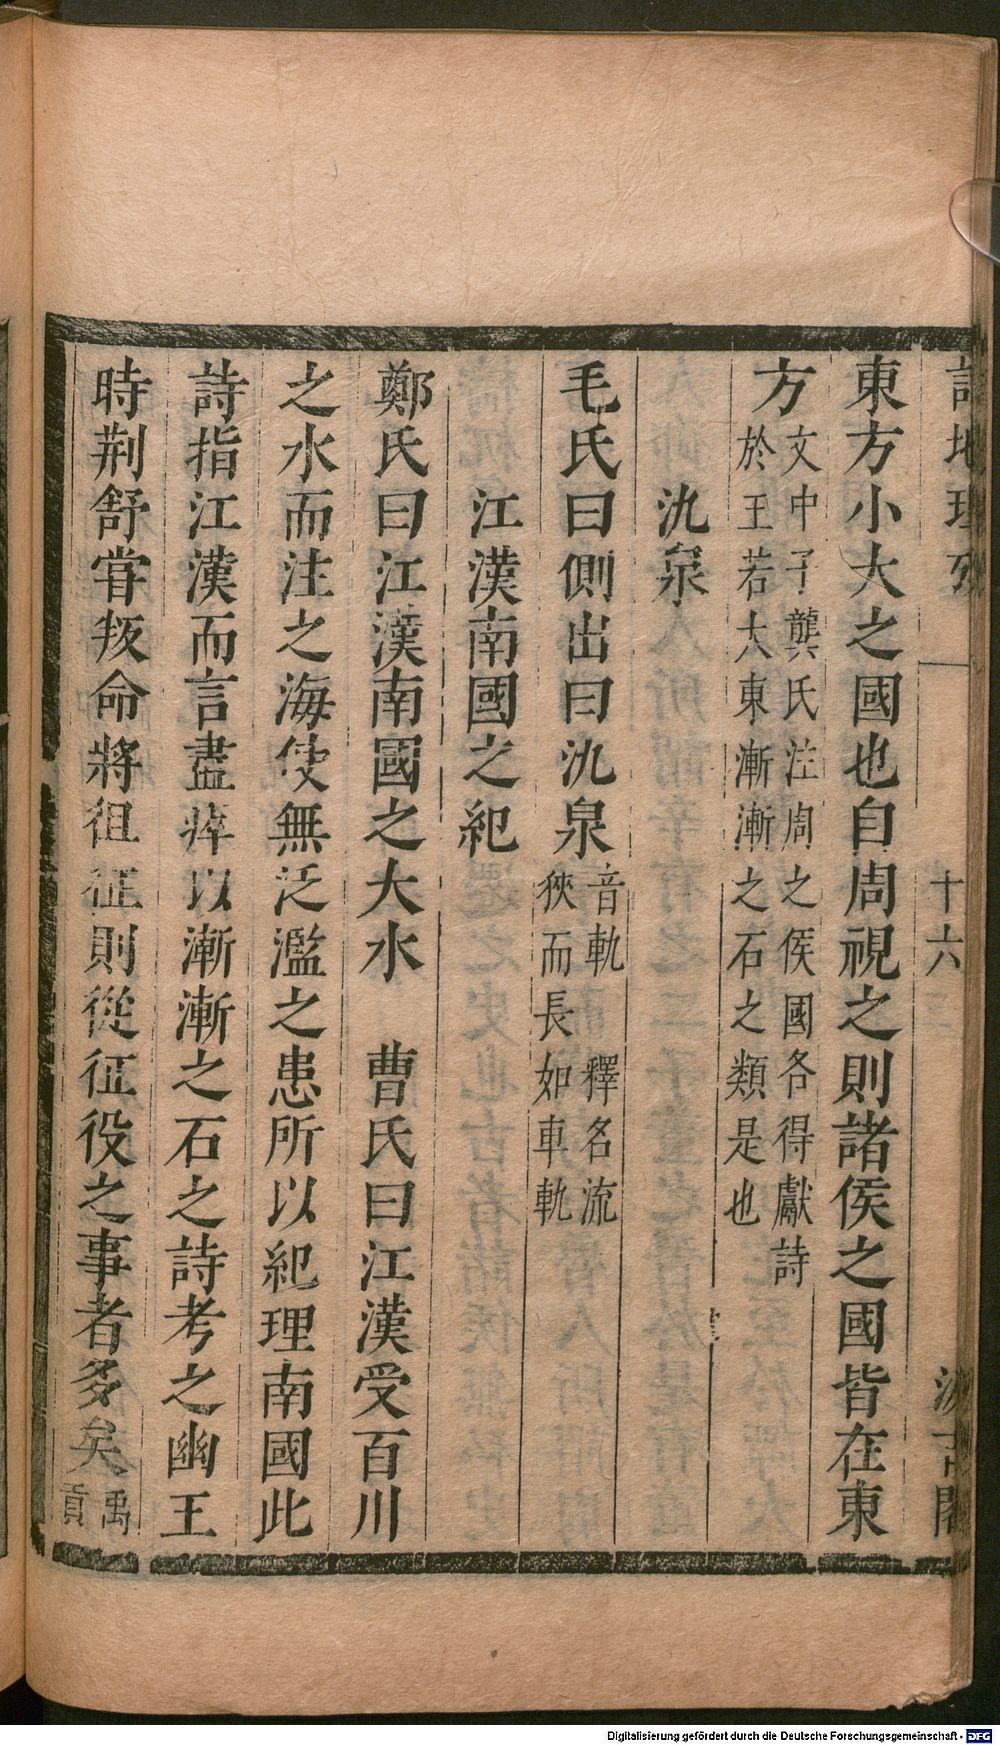 東方小大之國也自周視之則諸侯之國皆在東
方文中子龔氏注周之侯國各得獻詩
於王若大東漸漸之石之類是也
氿泉
毛氏曰側出曰氿泉音軌 釋名流
狹而長如車軌
江漢南國之紀
鄭氏曰江漢南國之大水 曹氏曰江漢受百川
之水而注之海使無泛濫之患所以紀理南國此
詩指江漢而言盡瘁以漸漸之石之詩考之幽王
時荆舒嘗叛命將徂征則從征役之事者多矣禹
貢
十六
Digitalisierung gefördert durch die Deutsche Forschungsgemeinschaft - DFG